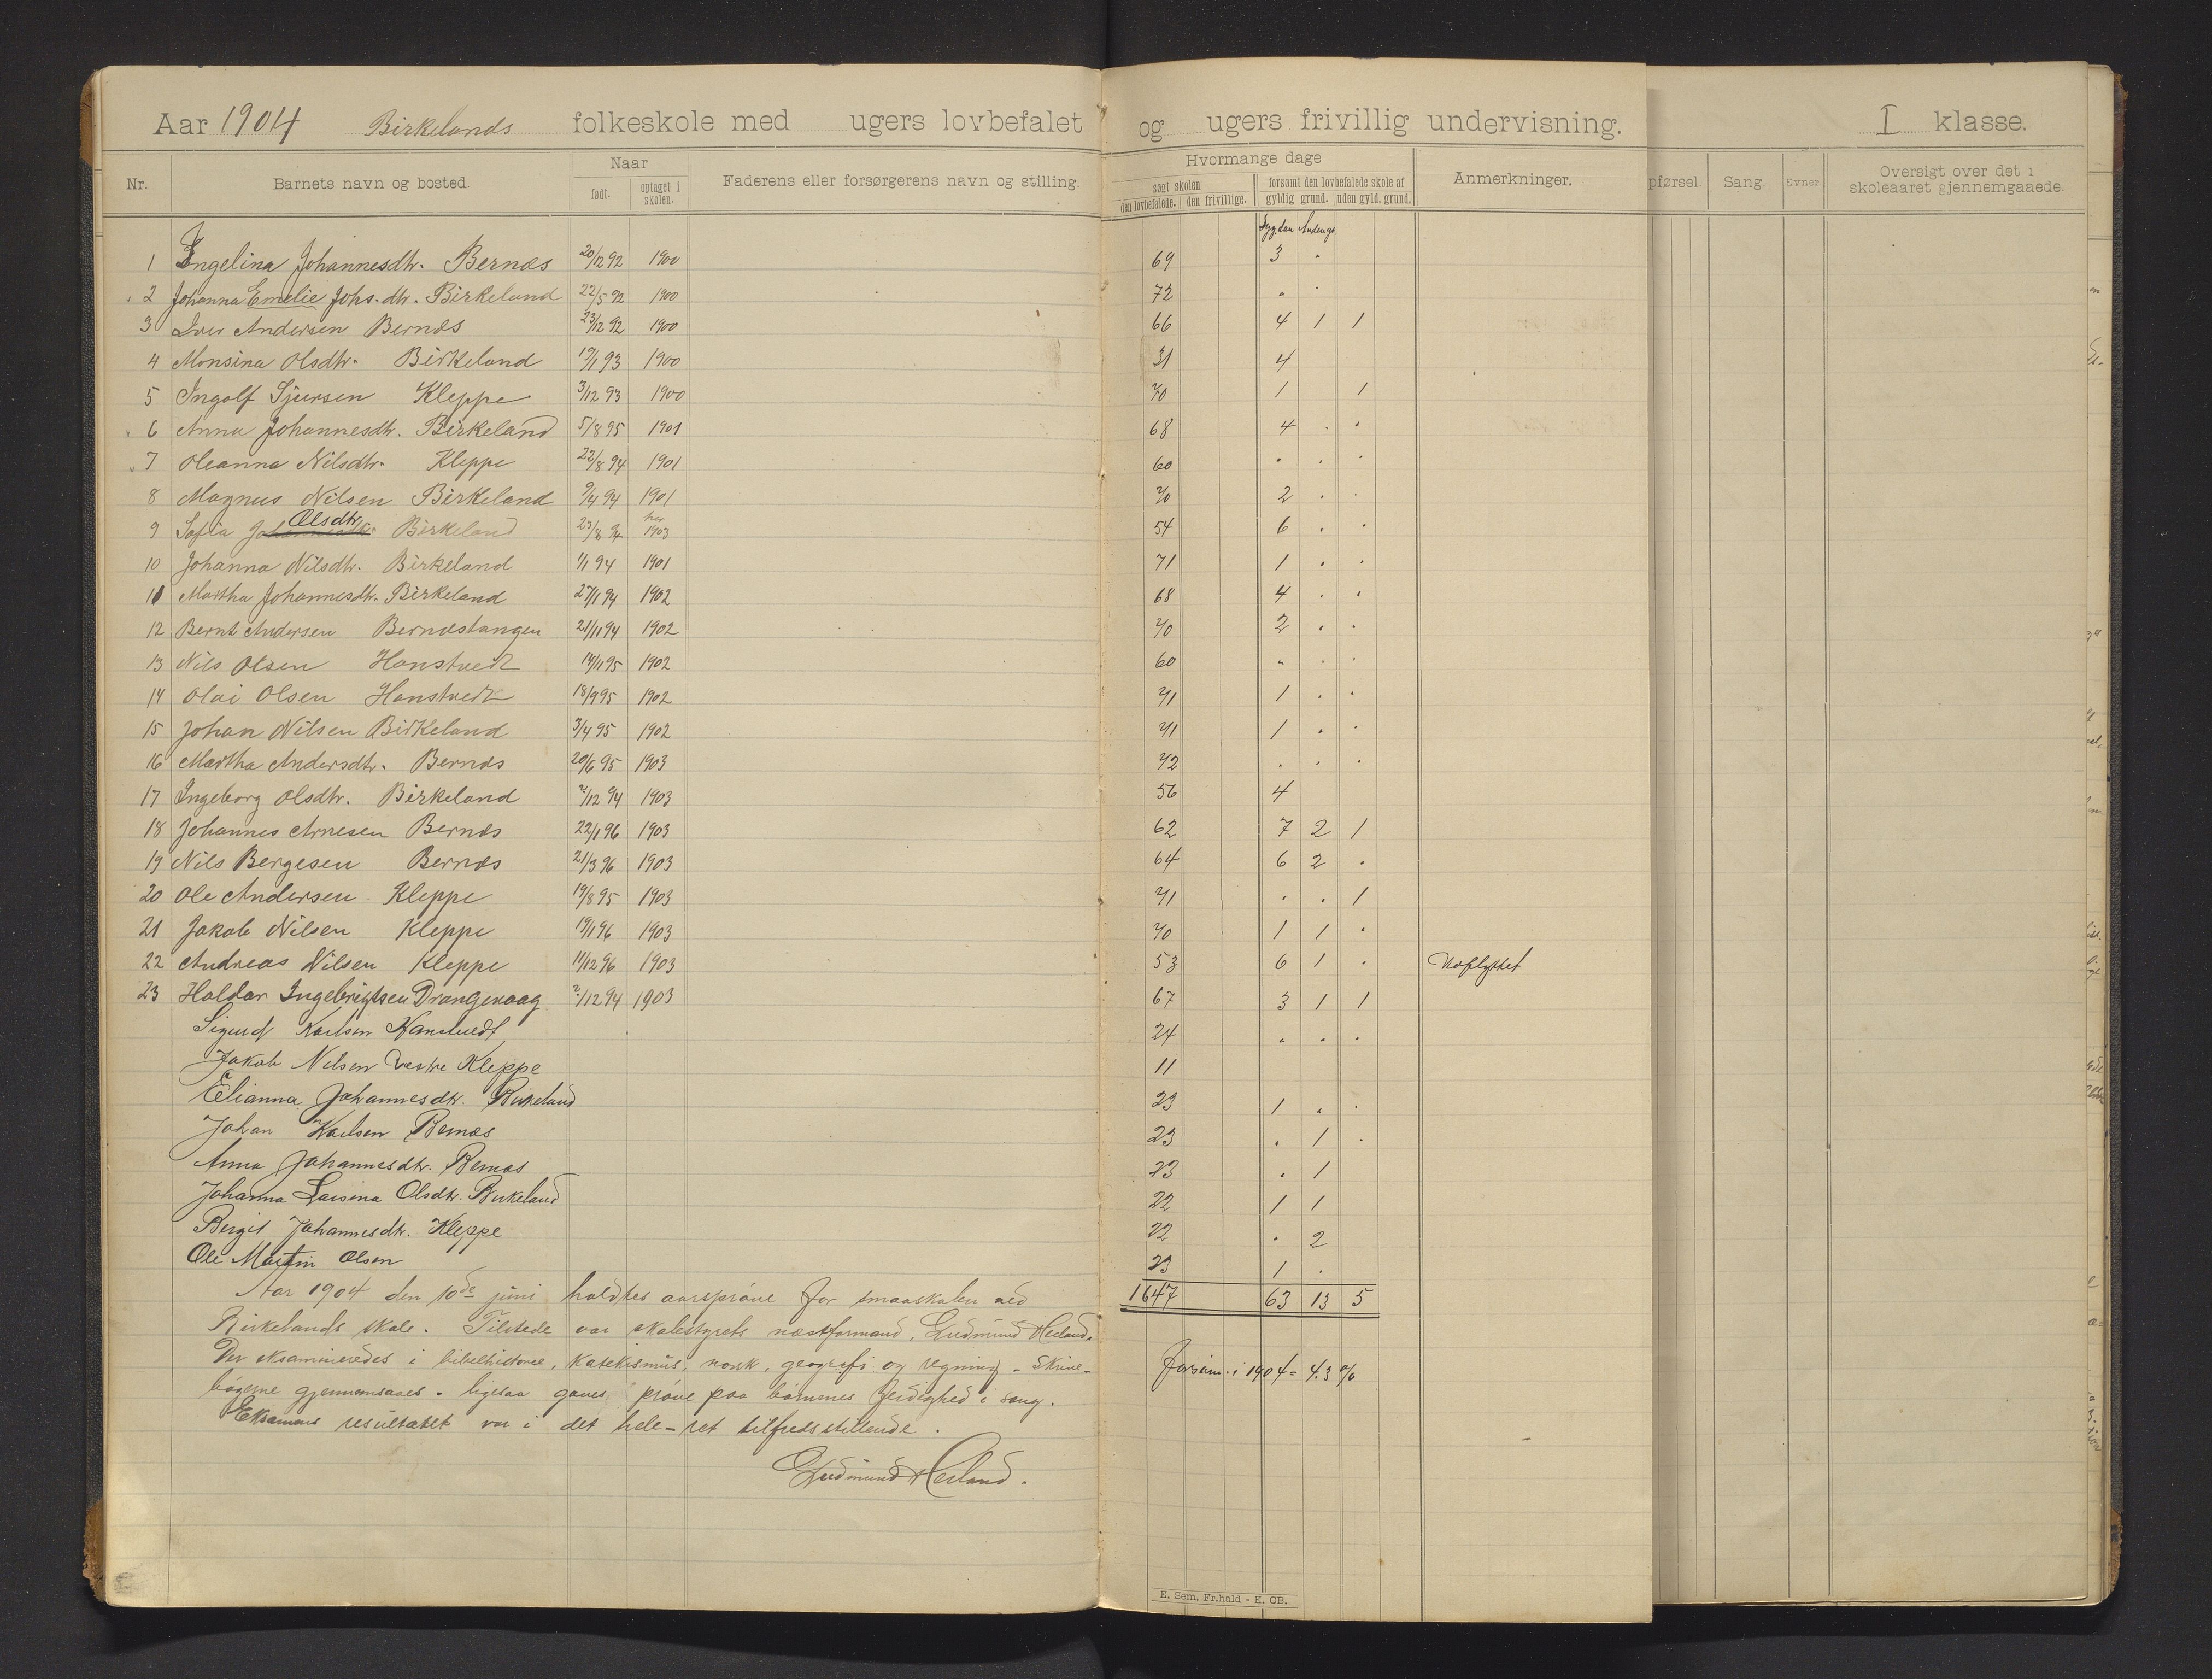 Aar 1904 Birkelands folkeskole med ugers lovbefalet og ugers frivillig undervisning. I klasse.
Nr. Barnets navn og bosted. Naar født. optaget i skolen. Faderens eller forsørgerens navn og stilling. Hvormange dage søgt skolen den lovbefalede. den frivillige. forsømt den lovbefalede skole af gyldig grund. uden gyld. grund. Anmerkninger. pførsel Sang. Evner Oversigt over det i skoleaaret gjennemgaaede.
Sygdom
1 Ingelina Johannesdtr. Bernæs 20/12 92 1900 69 3 .
2 Johanna Emelie Johs. dtr. Birkeland 22/5 92 1900 72 . .
3 Iver Andersen Bernæs 23/12 92 1900 66 4 1 1
4 Monsina Olsdtr. Birkeland 19/1 93 1900 31 4
5 Ingolf Sjursen Kleppe 3/12 93 1900 70 1 1
6 Anna Johannesdtr. Birkeland 5/8 95 1901 68 4 . .
7 Oleanna Nilsdtr. Kleppe 22/8 94 1901 60 . . .
8 Magnus Nilsen Birkeland 9/4 94 1901 70 2 . .
9 Sofia Olsdtr. Birkeland 23/8 94 her 1903 54 6 . .
10 Johanna Nilsdtr. Birkeland 1/1 94 1901 71 1 . .
11 Martha Johannesdtr. Birkeland 27/1 94 1902 68 4 . .
12 Bernt Andersen Bernæstangen 21/11 94 1902 70 2 . .
13 Nils Olsen Hanstvedt 14/11 95 1902 60 . . .
14 Olai Olsen Hanstvedt 18/9 95 1902 71 1 . .
15 Johan Nilsen Birkeland 3/4 95 1902 71 1 . .
16 Martha Andersdtr. Bernæs 20/6 95 1903 72 . . .
17 Ingeborg Olsdtr. Birkeland 2/12 94 1903 56 4
18 Johannes Arnesen Bernæs 22/1 96 1903 62 7 2 1
19 Nils Bergesen Bernæs 21/3 96 1903 64 6 2 .
20 Ole Andersen Kleppe 19/8 95 1903 71 . . 1
21 Jakob Nilsen Kleppe 19/1 96 1903 70 1 1 .
22 Andreas Nilsen Kleppe 11/12 96 1903 53 6 1 .
23 Haldor Ingebrigtsen Drangevaag 2/12 94 1903 67 3 1 1
Sigurd Karlsen Hanstvedt 24 . . .
Jakob Nilsen Vestre Kleppe 11
Elianna Johannesdtr. Birkeland 23 1 . .
Johan Karlsen Bernæs 23 . 1 .
Anna Johannesdtr. Bernæs 23 . 1
Johanna Lausina Olsdtr. Birkeland 22 1 1
Bergit Johannesdtr. Kleppe 22 . 2
Ole Martin Olsen 23 1 .
1647 63 13 5
Aar 1904 den 10de juni holdtes aarsprøve for smaaskolen ved
Birkelands skole. Tilstede var skolestyrets næstformand, Gudmund Hesland.
Der eksamineredes i bibelhistorie, katekismus, norsk, geografi og regning. Skrive-
bøgerne gjennemsaaes. ligesaa gaves prøve paa børnenes færdighed i sang.
Eksamens resultatet var i det hele ret tilfredsstillende.
Gudmund Hesland.
Forsøm. i 1904 = 4.3 %
E. Sem, Fr.hald - E. CB.